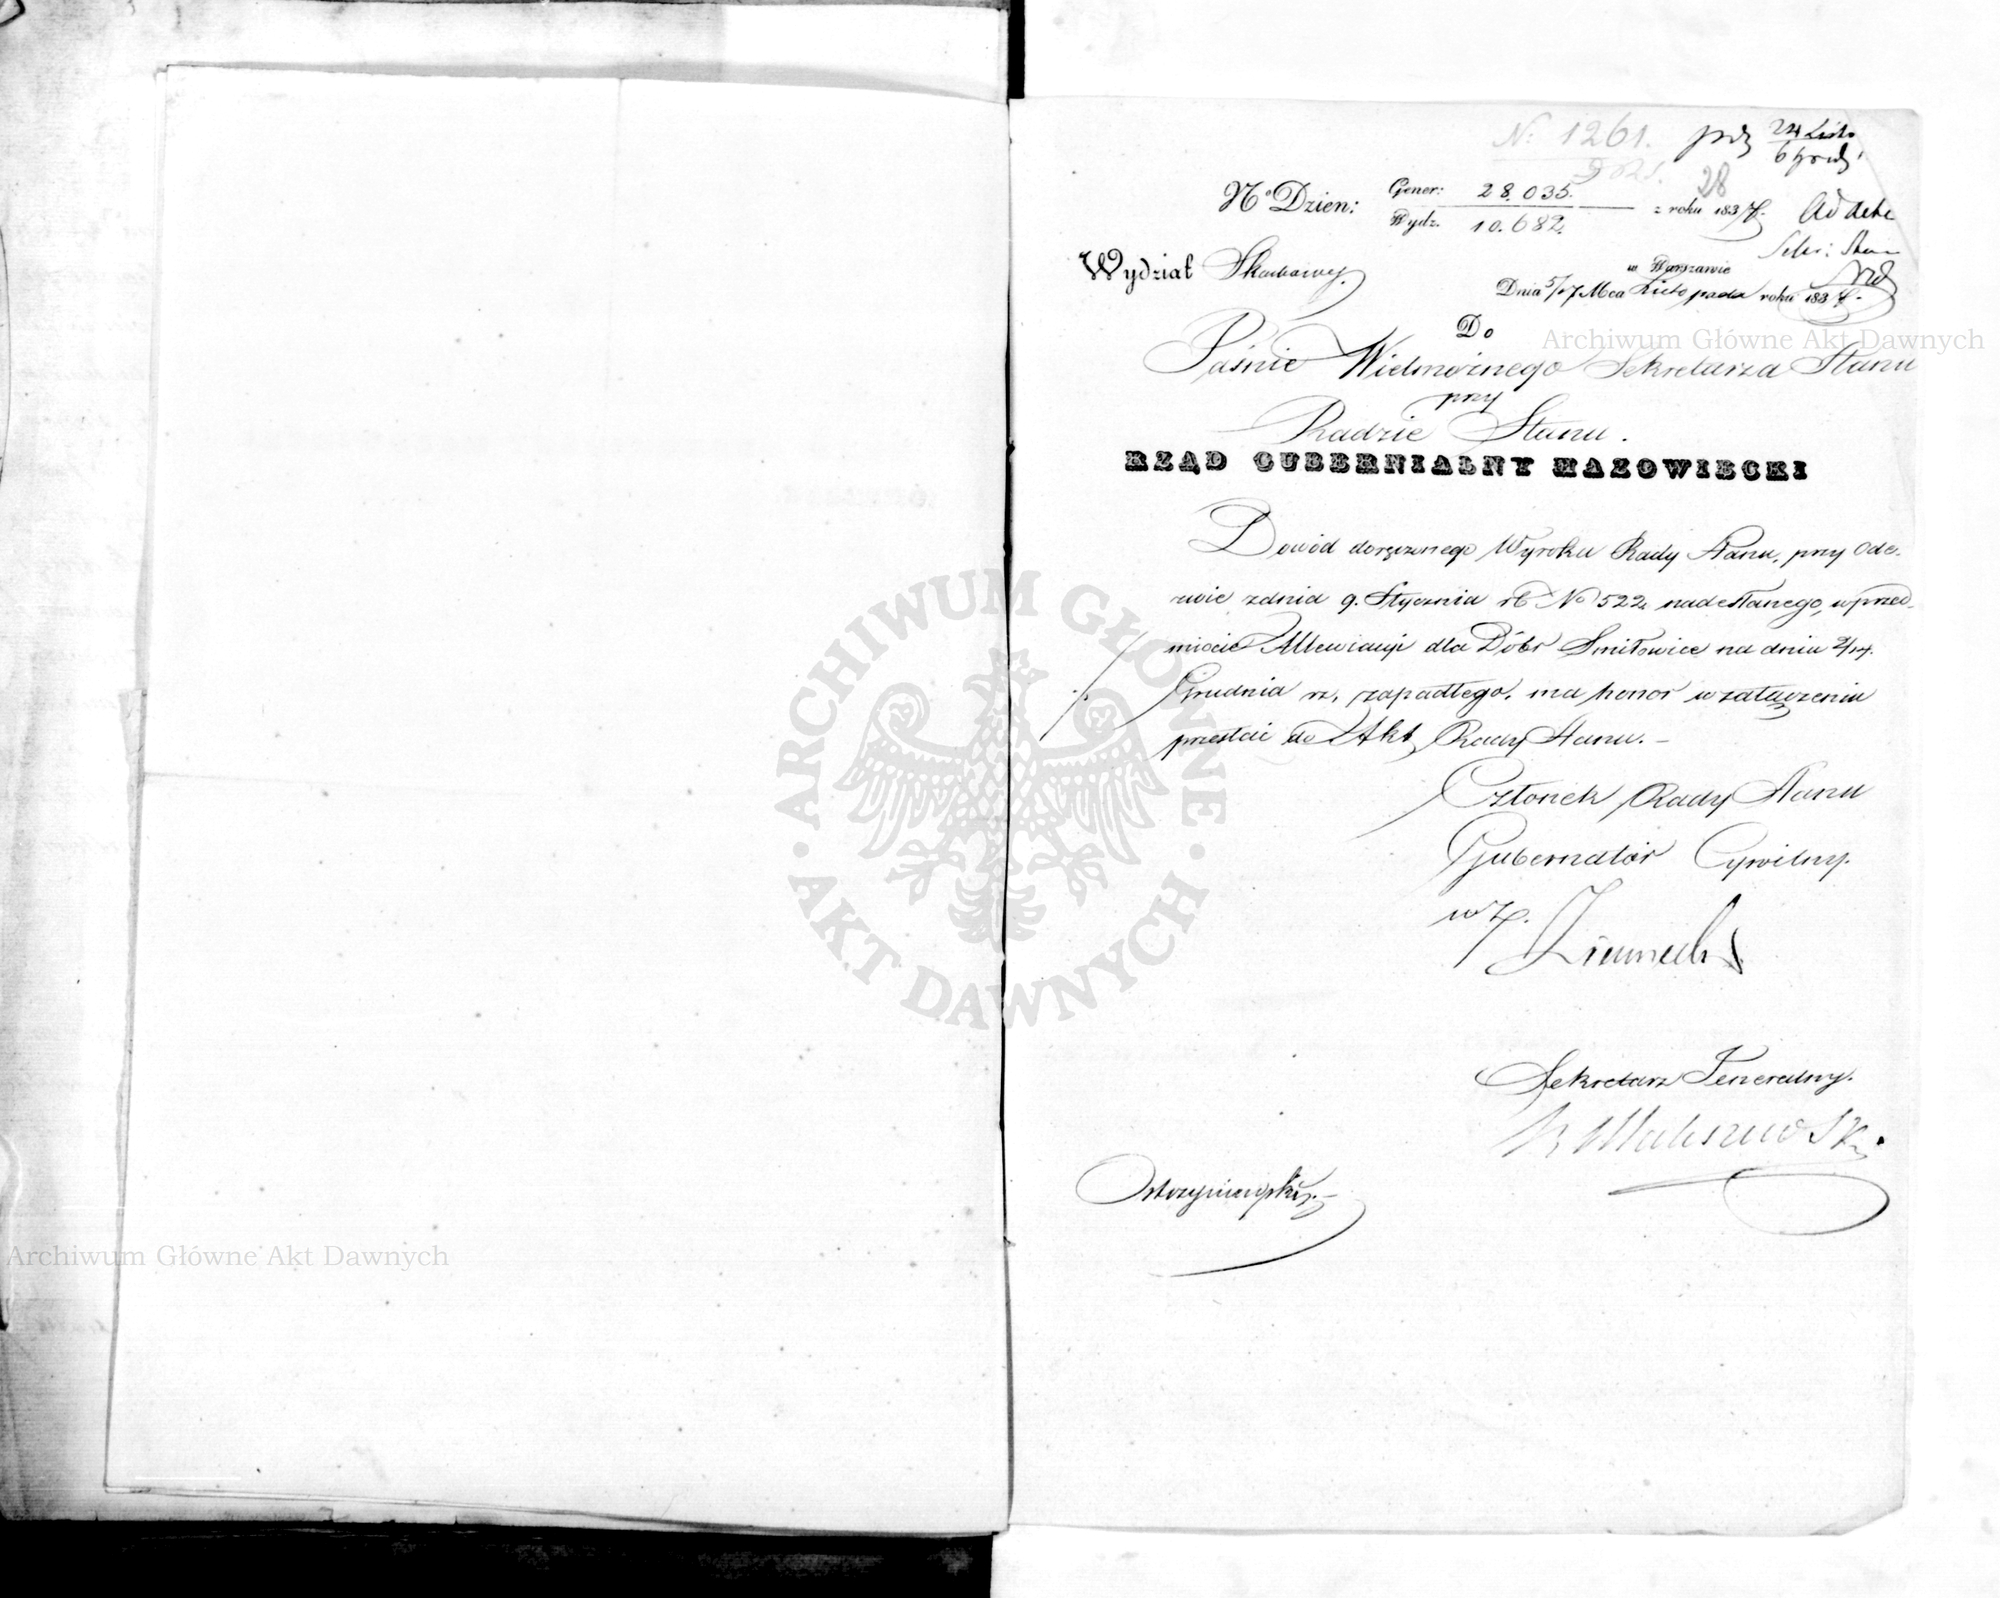 N: 1261.
24 List.
6 Grud.
28
Nº Dzien: Gener: 28.035. z roku 1837.
Wydz. 10.682.
Ad acta
Sekr: Stanu
Wydział Skarbowy.
w Warszawie
Dnia 5/17 Mca Listopada roku 1837.
Do
Jaśnie Wielmożnego Sekretarza Stanu
przy
Radzie Stanu.
RZĄD GUBERNIALNY MAZOWIECKI
Dowód doręczonego Wyroku Rady Stanu, przy Ode-
zwie z dnia 9. Stycznia rb No 522 nadesłanego, w przed-
miocie Allewiacyi dla Dóbr Smiłowice na dniu 2/14.
Grudnia rz. zapadłego, ma honor w załączeniu
przesłać do Akt Rady Stanu. –
Członek Rady Stanu
Gubernator Cywilny.
w z.
Sekretarz Generalny.
Archiwum Główne Akt Dawnych
ARCHIWUM GŁÓWNE · AKT DAWNYCH ·
Archiwum Główne Akt Dawnych